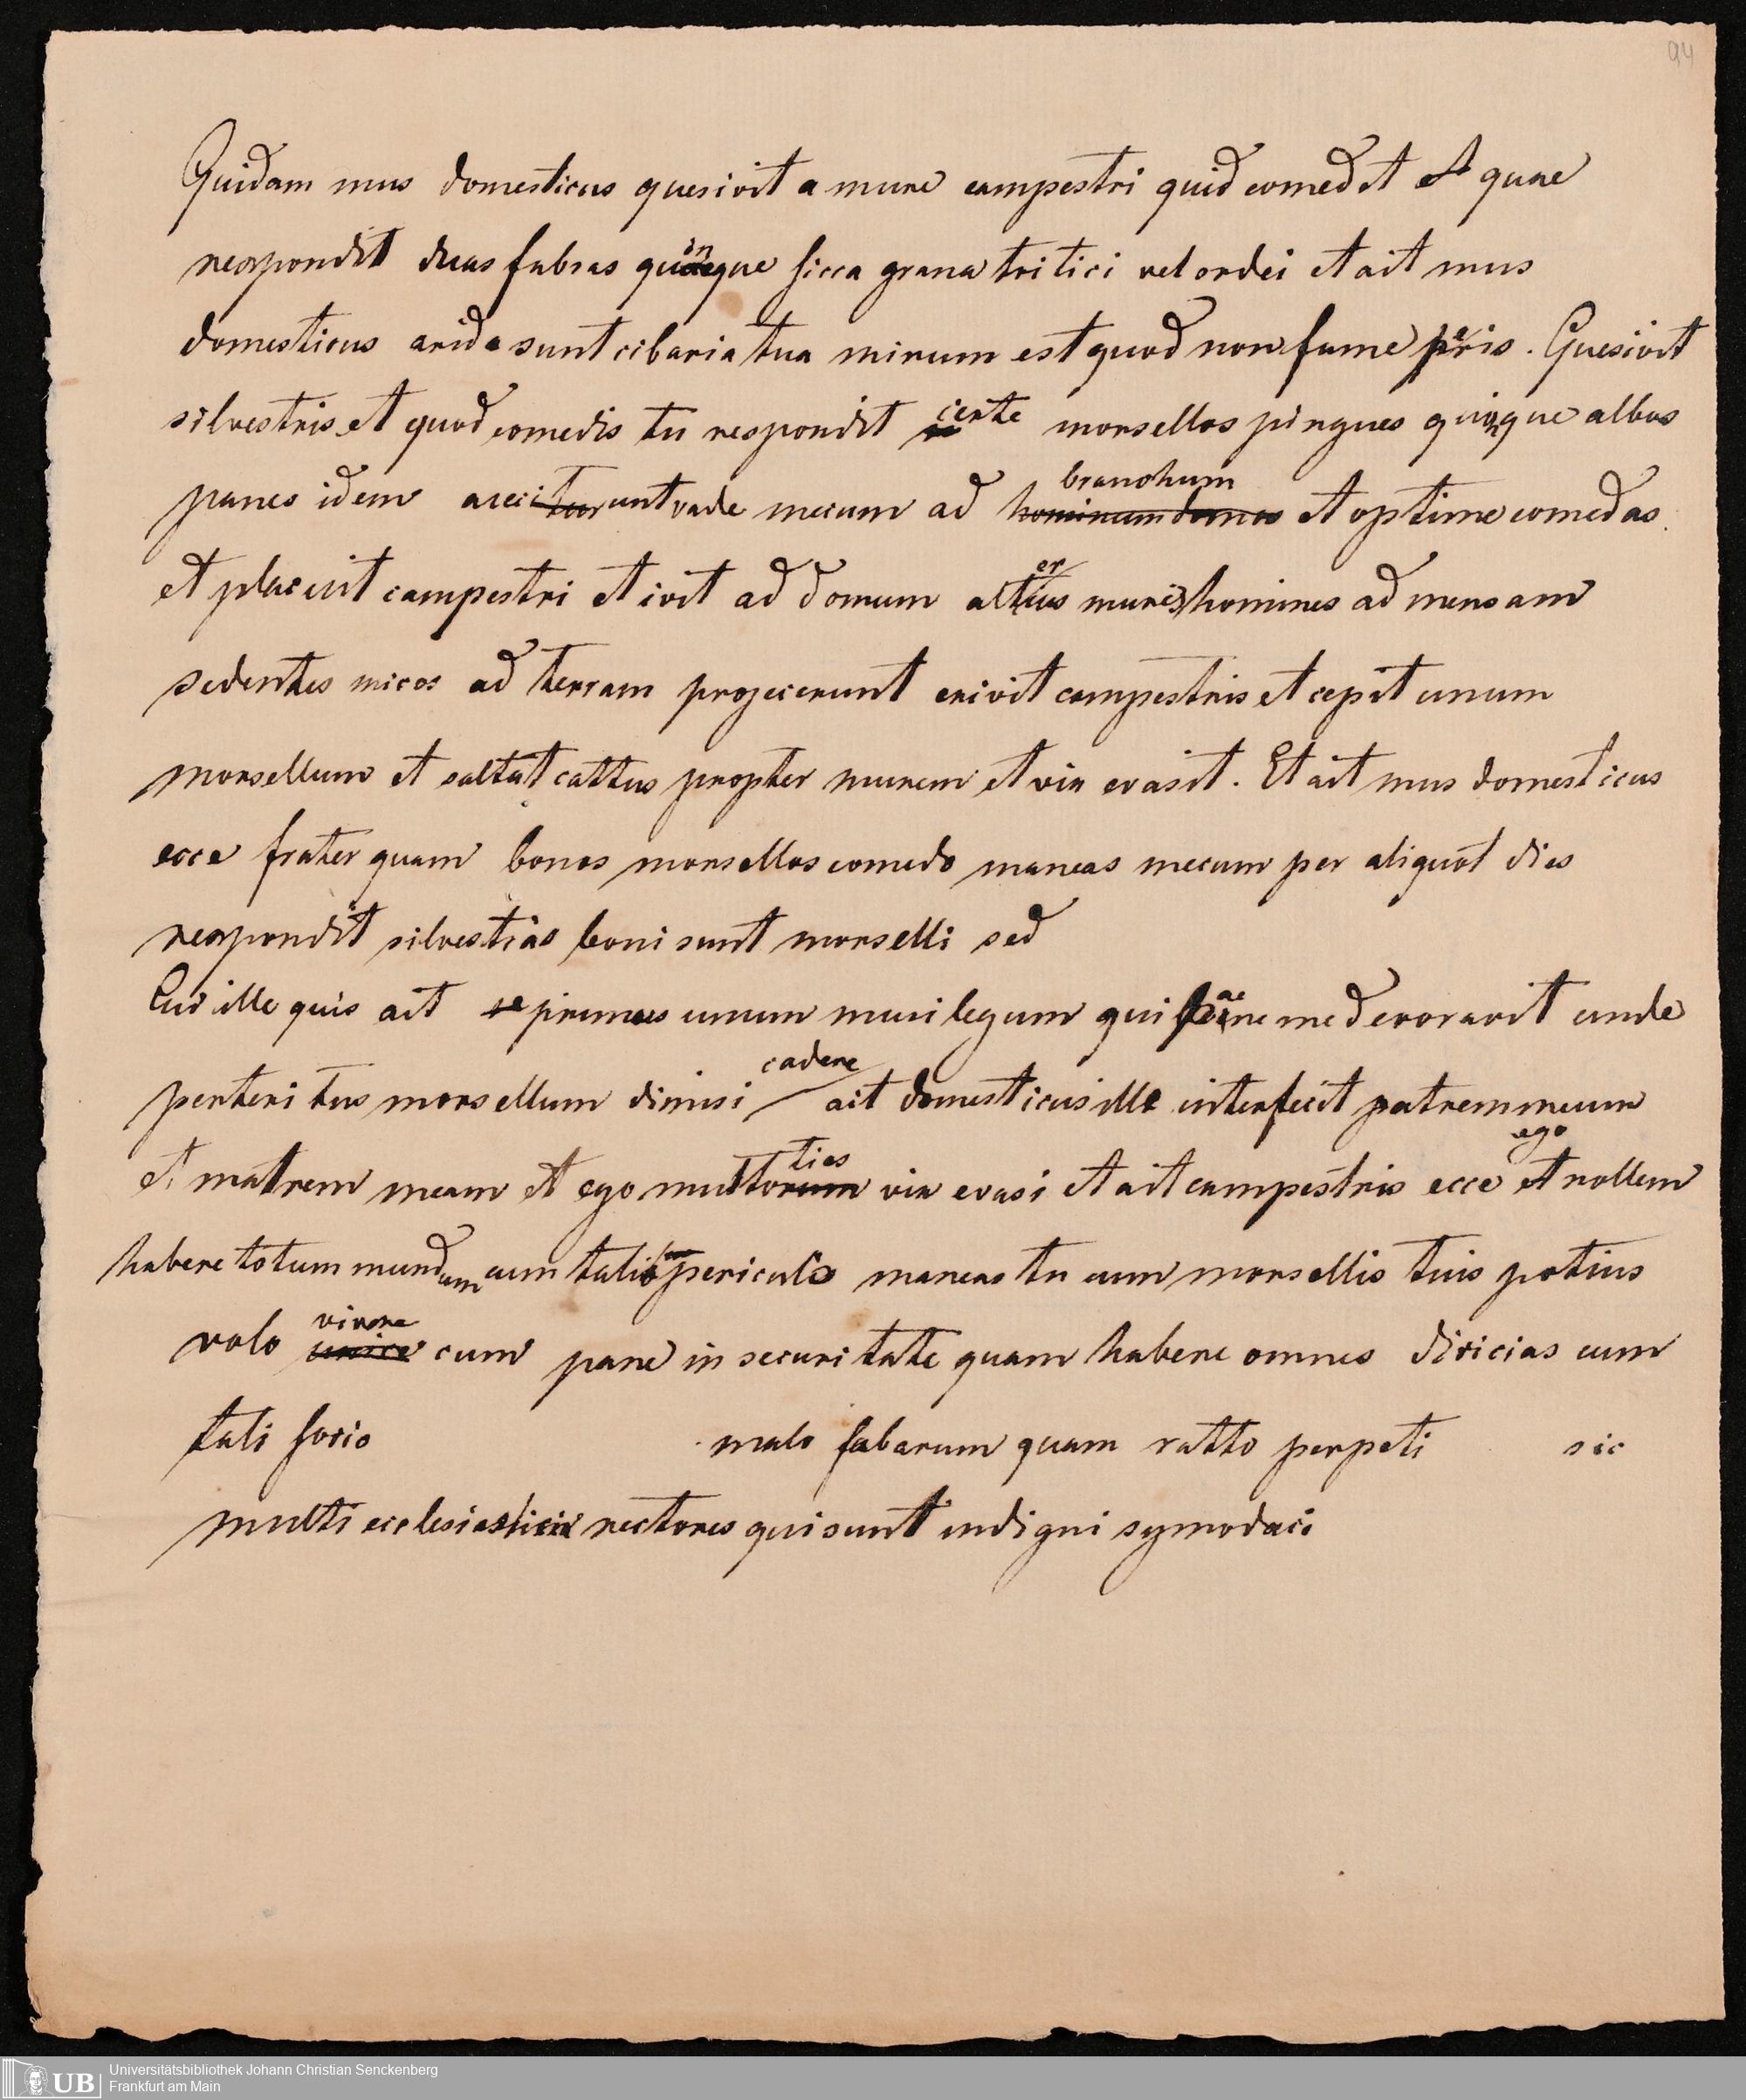 94
Quidam mus domesticus quesivit a mure campestri quid comedit et quare
respondit duas fabas quinque sicca grana tritici vel ordei et ait mus
domesticus arida sunt cibaria tua mirum est quod non fame peris. Quesivit
silvestris et quod comedis tu respondit certe morsellos pingues quinque albos
panes idem unt vade mecum ad branchum hominum domos et optime comedas
et placuit campestri et ivit ad domum alterius muris homines ad mensam
sedentes micos ad terram projecerunt exivit campestris et cepit unum
morsellum et saltat cattus propter murem et vix evasit. Et ait mus domesticus
ecce frater quam bonos morsellos comedo maneas mecum per aliquot dies
respondit silvestris boni sunt morselli sed
Cui ille quis ait unum murilegum qui me devoravit unde
perteritus morsellum dimisi cadere ait domesticus ille interfecit patrem meum
et matrem meam et ego multoties vix evasi et ait campestris ecce ego et nollem
habere totum mundum cum tali periculo maneas tu cum morsellis tuis potius
volo vivere cum pane in securitate quam habere omnes divicias cum
tali socio malo fabarum quam ratto perpeti sic
multi ecclesiastici rectores qui sunt indigni symodaci
UB Universitätsbibliothek Johann Christian Senckenberg
Frankfurt am Main